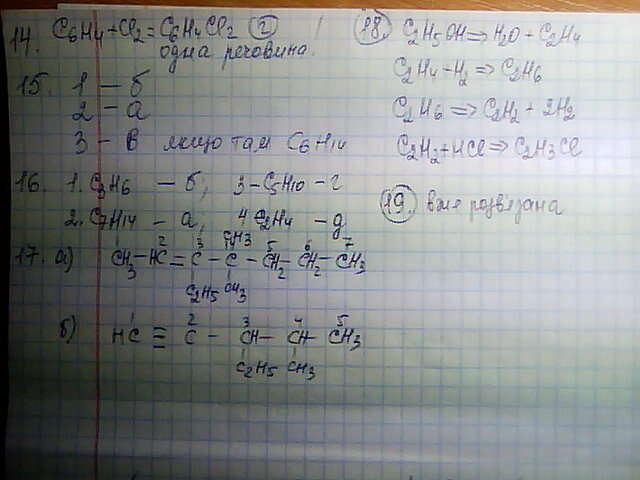 14. C6H4+Cl2=C6H4Cl2 (г)
одна речовина.
15. 1 – б
2 – а
3 – в якщо там C6H14
16. 1. C3H6 – б, 3 – C5H10 – г
2. C7H14 – а, 4 C2H4 – д
17. а) CH3 – HC = C – C – CH2 – CH2 – CH3
2 3 4 5 6 7
CH3
C2H5 CH3
б) HC ≡ C – CH – CH – CH3
1 2 3 4 5
C2H5 CH3
18. C2H5OH ⇒ H2O + C2H4
C2H4 – H2 ⇒ C2H6
C2H6 ⇒ C2H2 + 2H2
C2H2 + HCl ⇒ C2H3Cl
19. вже розв'язана